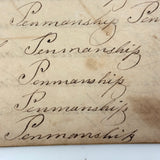 Penmanship Pen
Penmanship
Penmanship
Penmanship
Penmanship
Penmanship